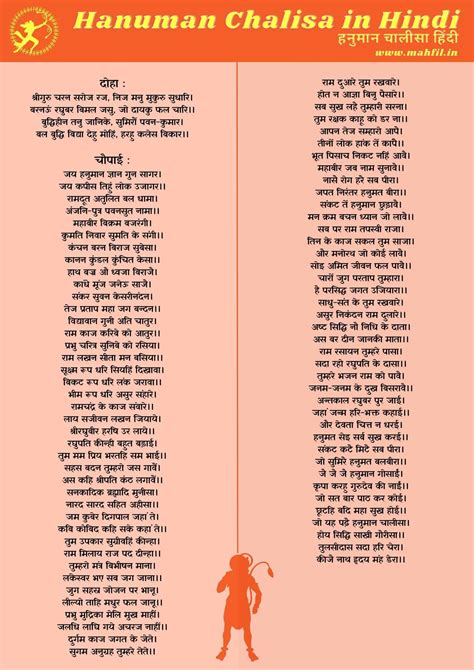 Hanuman Chalisa in Hindi
हनुमान चालीसा हिंदी
www.mahfil.in
दोहा :
श्रीगुरु चरन सरोज रज, निज मनु मुकुरु सुधारि।
बरनऊं रघुबर बिमल जसु, जो दायकु फल चारि।।
बुद्धिहीन तनु जानिके, सुमिरों पवन-कुमार।
बल बुद्धि बिद्या देहु मोहिं, हरहु कलेस बिकार।।
चौपाई :
जय हनुमान ज्ञान गुन सागर।
जय कपीस तिहुं लोक उजागर।।
रामदूत अतुलित बल धामा।
अंजनि-पुत्र पवनसुत नामा।।
महाबीर बिक्रम बजरंगी।
कुमति निवार सुमति के संगी।।
कंचन बरन बिराज सुबेसा।
कानन कुंडल कुंचित केसा।।
हाथ बज्र औ ध्वजा बिराजै।
कांधे मूंज जनेऊ साजै।
संकर सुवन केसरीनंदन।
तेज प्रताप महा जग बन्दन।।
विद्यावान गुनी अति चातुर।
राम काज करिबे को आतुर।।
प्रभु चरित्र सुनिबे को रसिया।
राम लखन सीता मन बसिया।।
सूक्ष्म रूप धरि सियहिं दिखावा।
बिकट रूप धरि लंक जरावा।।
भीम रूप धरि असुर संहारे।
रामचंद्र के काज संवारे।।
लाय सजीवन लखन जियाये।
श्रीरघुबीर हरषि उर लाये।।
रघुपति कीन्ही बहुत बड़ाई।
तुम मम प्रिय भरतहि सम भाई।।
सहस बदन तुम्हरो जस गावैं।
अस कहि श्रीपति कंठ लगावैं।।
सनकादिक ब्रह्मादि मुनीसा।
नारद सारद सहित अहीसा।।
जम कुबेर दिगपाल जहां ते।
कबि कोबिद कहि सके कहां ते।।
तुम उपकार सुग्रीवहिं कीन्हा।
राम मिलाय राज पद दीन्हा।।
तुम्हरो मंत्र बिभीषन माना।
लंकेस्वर भए सब जग जाना।।
जुग सहस्र जोजन पर भानू।
लील्यो ताहि मधुर फल जानू।।
प्रभु मुद्रिका मेलि मुख माहीं।
जलधि लांघि गये अचरज नाहीं।।
दुर्गम काज जगत के जेते।
सुगम अनुग्रह तुम्हरे तेते।।
राम दुआरे तुम रखवारे।
होत न आज्ञा बिनु पैसारे।।
सब सुख लहै तुम्हारी सरना।
तुम रक्षक काहू को डर ना।।
आपन तेज सम्हारो आपै।
तीनों लोक हांक तें कांपै।।
भूत पिसाच निकट नहिं आवै।
महाबीर जब नाम सुनावै।।
नासै रोग हरै सब पीरा।
जपत निरंतर हनुमत बीरा।।
संकट तें हनुमान छुड़ावै।
मन क्रम बचन ध्यान जो लावै।।
सब पर राम तपस्वी राजा।
तिन के काज सकल तुम साजा।
और मनोरथ जो कोई लावै।
सोइ अमित जीवन फल पावै।।
चारों जुग परताप तुम्हारा।
है परसिद्ध जगत उजियारा।।
साधु-संत के तुम रखवारे।
असुर निकंदन राम दुलारे।।
अष्ट सिद्धि नौ निधि के दाता।
अस बर दीन जानकी माता।।
राम रसायन तुम्हरे पासा।
सदा रहो रघुपति के दासा।।
तुम्हरे भजन राम को पावै।
जनम-जनम के दुख बिसरावै।।
अन्तकाल रघुबर पुर जाई।
जहां जन्म हरि-भक्त कहाई।।
और देवता चित्त न धरई।
हनुमत सेइ सर्ब सुख करई।।
संकट कटै मिटै सब पीरा।
जो सुमिरै हनुमत बलबीरा।।
जै जै जै हनुमान गोसाईं।
कृपा करहु गुरुदेव की नाईं।।
जो सत बार पाठ कर कोई।
छूटहि बंदि महा सुख होई।।
जो यह पढ़ै हनुमान चालीसा।
होय सिद्धि साखी गौरीसा।।
तुलसीदास सदा हरि चेरा।
कीजै नाथ हृदय मंह डेरा।।